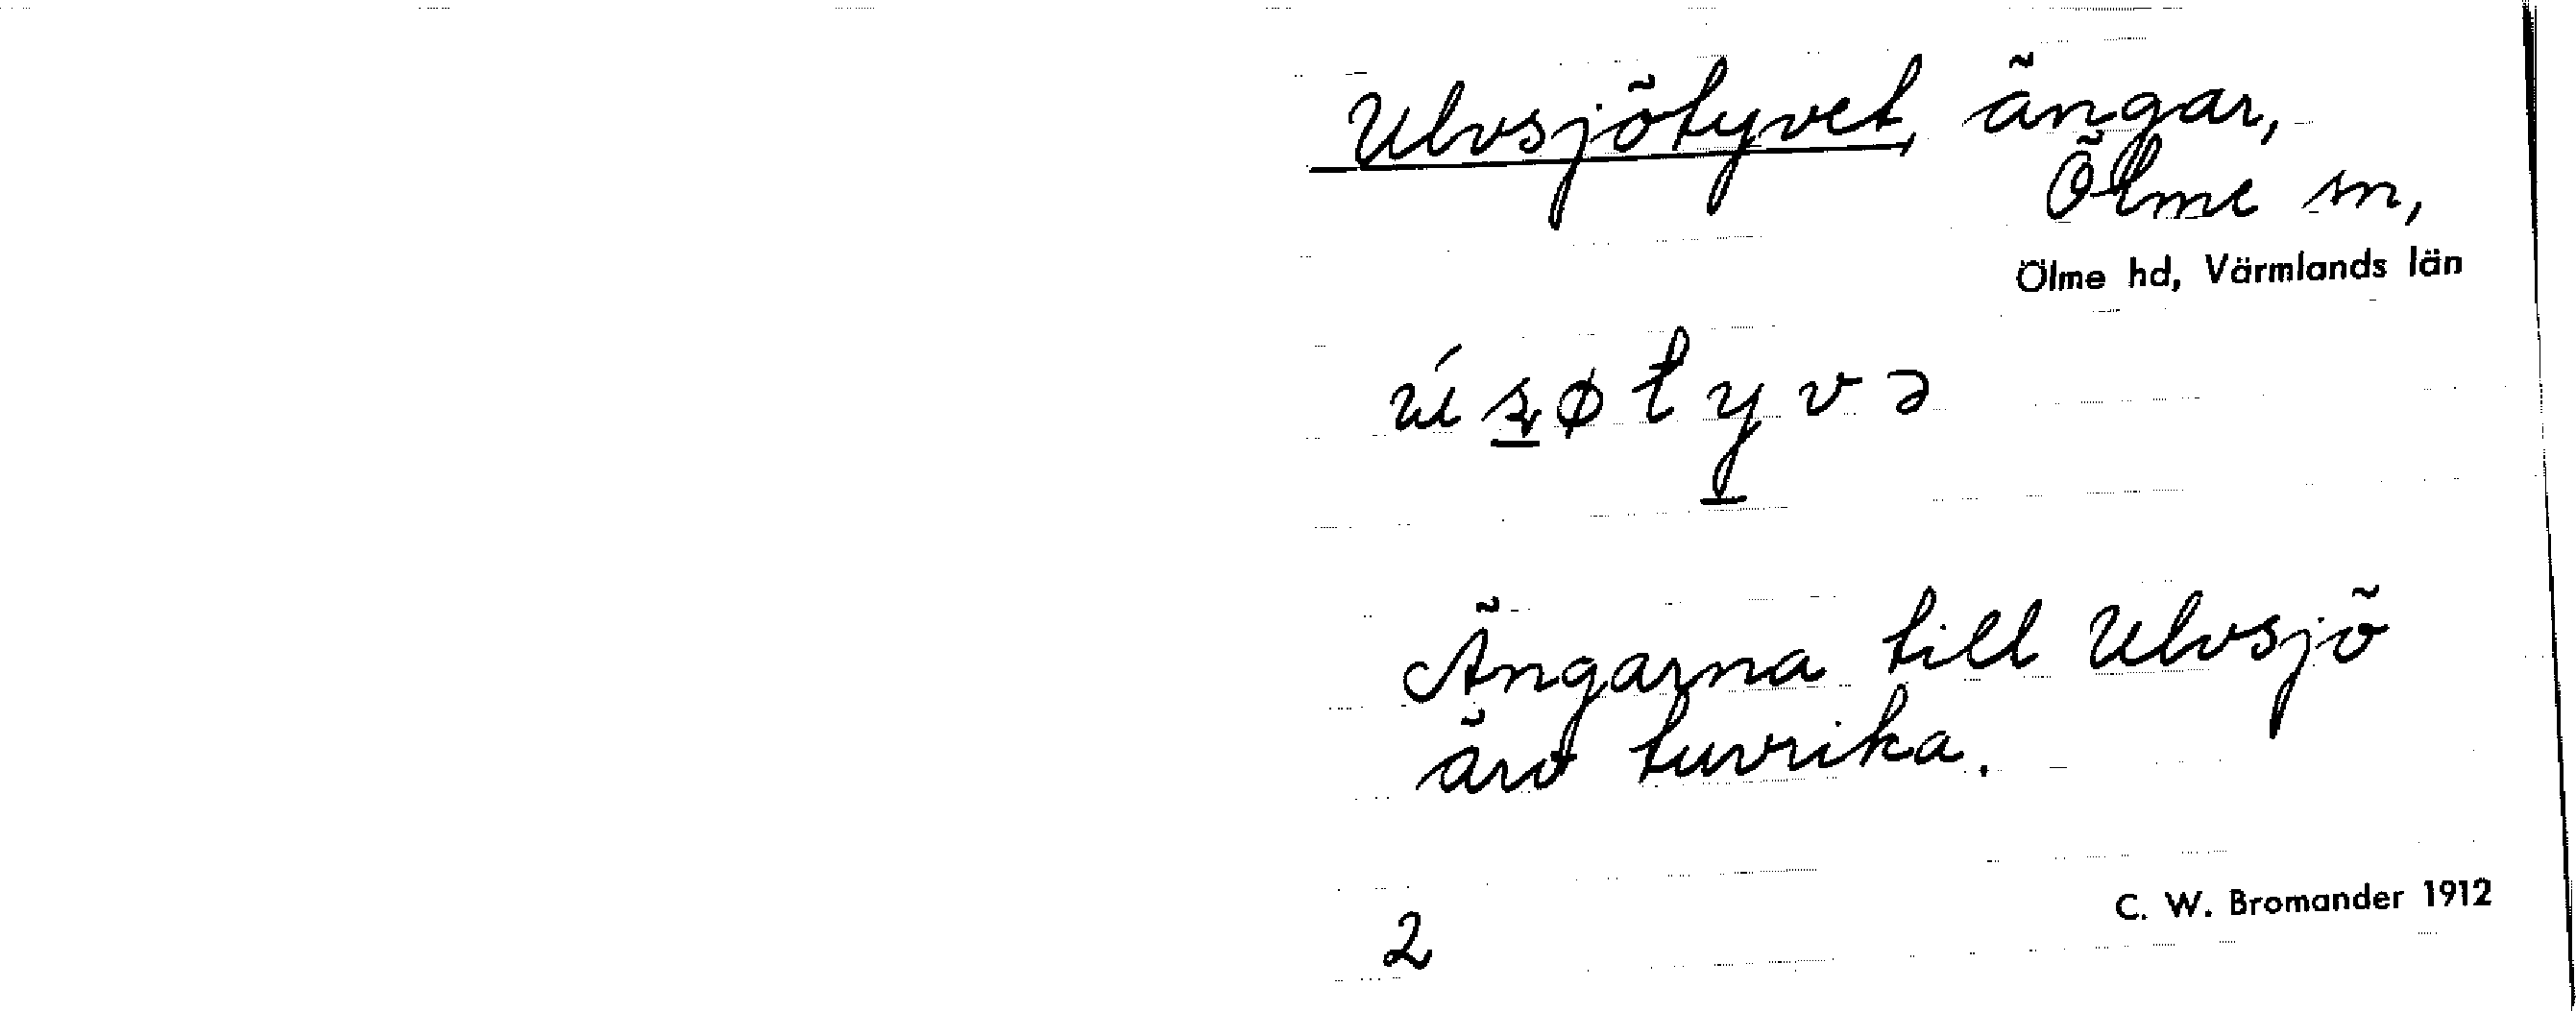 Ulvsjötyvet, ängar,
Ölme sn,
Ölme hd, Värmlands län
Ängarna till Ulvsjö
äro tuvrika.
C. W. Bromander 1912
2